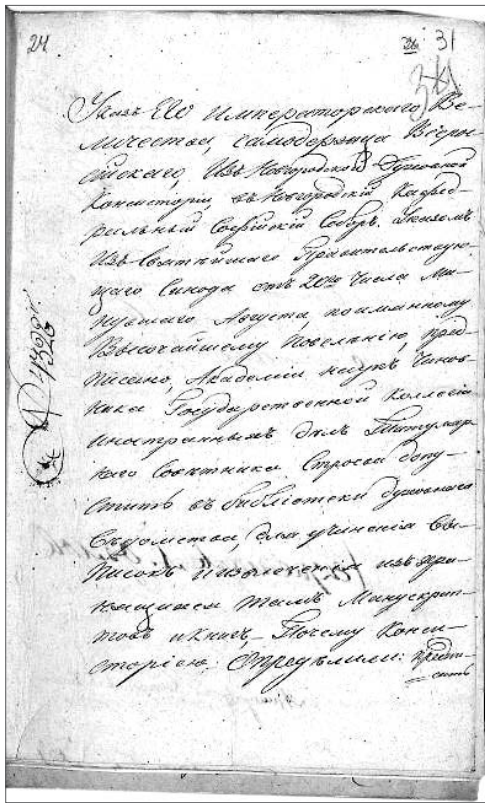 24
26 31
Указъ Его Императорскаго Ве-
личества, самодержца Всеро-
сійскаго, Изъ Новгородской Духовной
Консисторіи, въ Новгородскій Кафед-
ральный Софійскій Соборъ. Указомъ
Изъ Святѣйшаго Правительствую-
щаго Синода отъ 20го Числа Ми-
нувшаго Августа, по имянному
Высочайшему повелѣнію пред-
писано, Академіи наукъ Чинов-
ника Государственной Коллегіи
иностранныхъ дѣлъ Титуляр-
наго Совѣтника Строева допу-
стить въ библіотеки духовнаго
вѣдомства, для учиненія вы-
писокъ и извлеченія изъ хра-
нящихся тамъ Манускрип-
товъ и книгъ, Почему Конси-
сторіею Опредѣлили: предпи-
сать